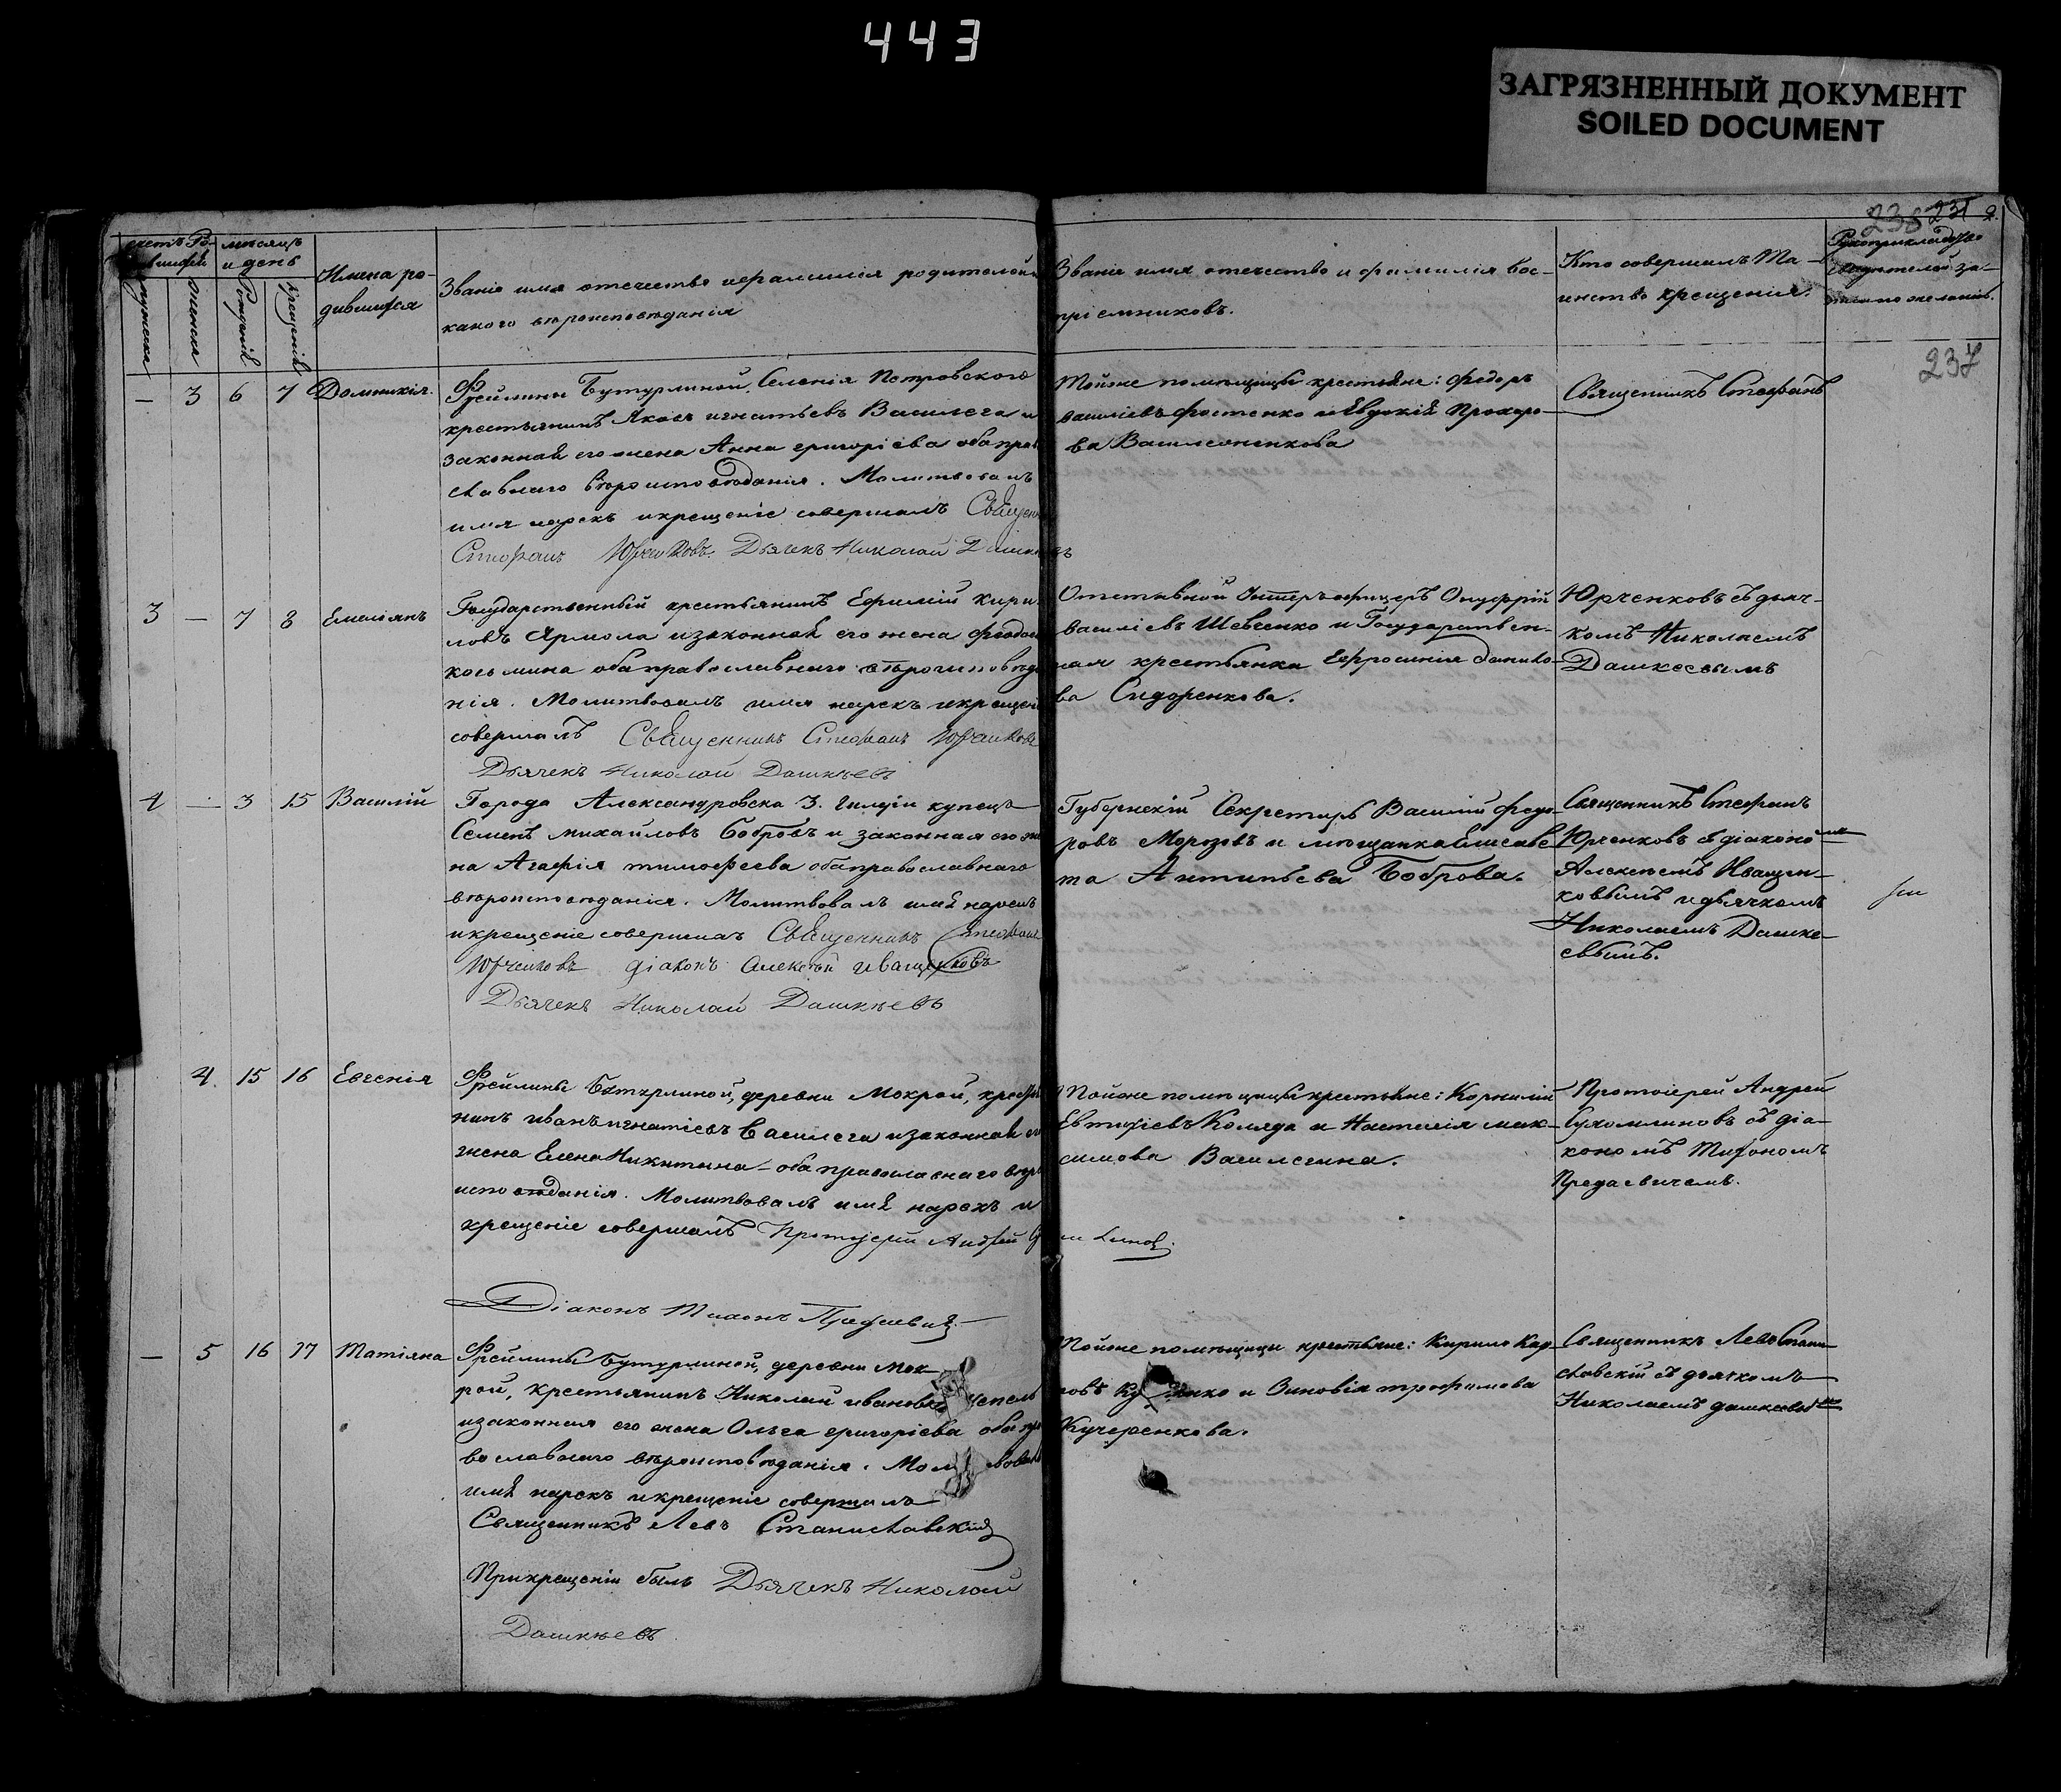 443
ЗАГРЯЗНЕННЫЙ ДОКУМЕНТ
SOILED DOCUMENT
238 231
237
счетъ Ро-
мѣсяцъ
и день
мужеска
женска
Рожденія
крещенія
Имена ро-
дившихся
Званіе имя отечество и фамилія родителей и
какого вѣроисповѣданія
Званіе имя отечество и фамилія вос-
пріемниковъ.
Кто совершалъ Та-
инство крещенія.
Рукоприкладство
свидѣтелей за-
писи по желанію.
— 3 6 7 Домникія.
Фрейлины Бутурлиной, Селенія Петровского
крестьянинъ Яковъ игнатьевъ Василега и
законная его жена Анна григоріева оба прав
славнаго вѣроисповѣданія. Молитвовалъ
имя нарекъ и крещеніе совершалъ Священ
Стефанъ Юрченковъ. Дьячекъ Николай Дашкѣевъ
Тойже помѣщицы крестьяне: Федоръ
василіевъ Фостенко и Евдокія Прохоро-
ва Василсоненкова
Священникъ Стефанъ
3 — 7 8 Емеліянъ
Государственный крестьянинъ Ефимій Кири-
ловъ Ярмола и законная его жена феодос
косьмина оба православнаго вѣроисповѣда
нія. Молитвовалъ имя нарекъ и крещені
совершалъ Священникъ Стефанъ Юрченковъ
Дьячекъ Николай Дашкѣевъ
Отставной Унтеръ офицеръ Онуфрій
василіевъ Шевченко и Государствен-
ная крестьянка Ефросинія данило-
ва Сидоренкова.
Юрченковъ съ дьяч-
комъ Николаемъ
Дашкеевымъ
4 — 3 15 Василій
Города Александровска 3. гилдіи купецъ
Семенъ михайловъ Бобровъ и законная его же
на Агафія тимофеева оба православнаго
вѣроисповѣданія. Молитвовалъ имя нарекъ
и крещеніе совершалъ Священникъ Стефанъ
Юрченковъ діаконъ Алексѣй иващенковъ
Дьячекъ Николай Дашкѣевъ
Губернскій Секретарь Василій федо-
ровъ Морозовъ и мѣщанка Елисаве
та Антипьева Боброва.
Священникъ Стефанъ
Юрченковъ съ діакономъ
Алексѣемъ Иващен-
ковымъ и дьячкомъ
Николаемъ Дашке-
евымъ.
4. 15 16 Евгенія
Фрейлины Бутурлиной, деревни Мокрой, крестья
нинъ иванъ игнатіевъ Василега и законная ег
жена Елена Никитина оба православнаго вѣро
исповѣданія. Молитвовалъ имя нарекъ и
крещеніе совершалъ Протоіерей Андрей Сухомлиновъ.
Діаконъ Тихонъ Предаевичъ
Тойже помѣщицы крестьяне: Корнилій
Евтифіевъ Коляда и Настасія мак-
симова Василегина.
Протоіерей Андрей
Сухомлиновъ съ діа-
кономъ Тифономъ
Предаевичемъ.
— 5 16 17 Татіяна
Фрейлины Бутурлиной, деревни Мок
рой, крестьянинъ Николай ивановъ
и законная его жена Ольга григоріева оба пра
вославнаго вѣроисповѣданія. Мол вовалъ
имя нарекъ и крещеніе совершалъ
Священникъ Левъ Станиславскій
При крещеніи былъ Дьячекъ Николай
Дашкѣевъ
Тойже помѣщицы крестьяне: Кирило Кар-
повъ и Зиновія трофимова
Кучеренкова.
Священникъ Левъ Стани-
славскій съ дьячкомъ
Николаемъ дашкеевымъ